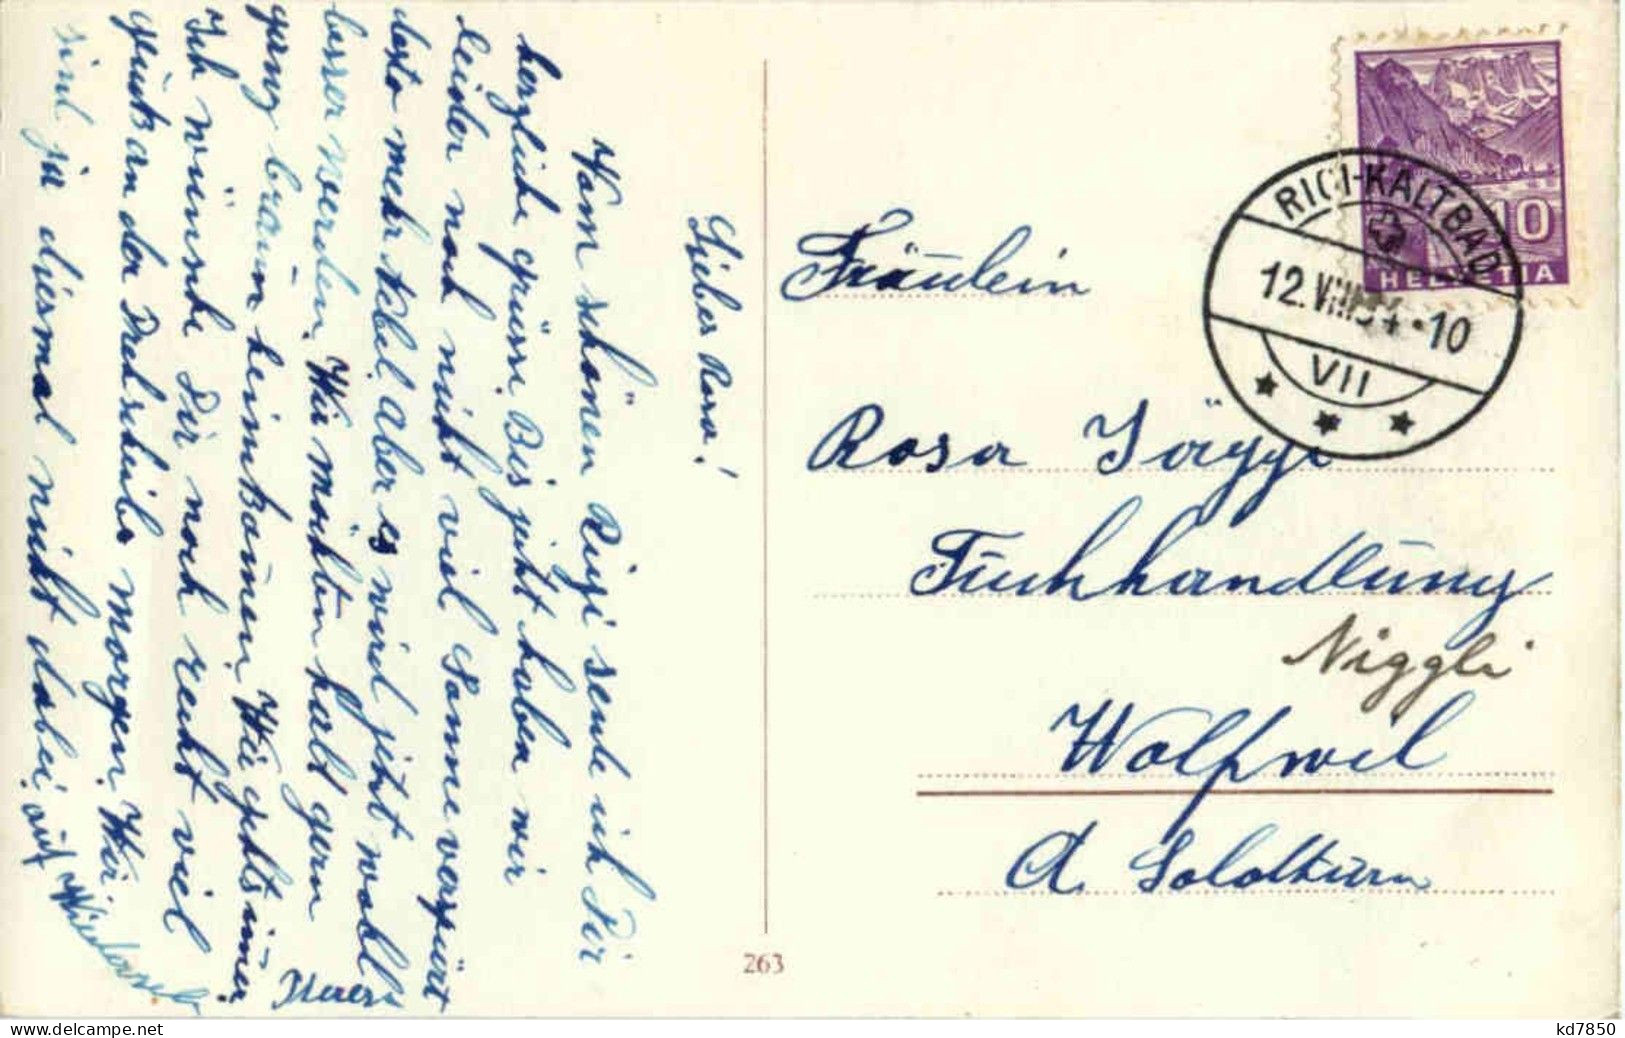 Liebes Rosa!
Vom schönen Rigi sende ich Dir
herzliche grüsse. Bis jetzt haben wir
leider noch nicht viel Sonne verspürt
desto mehr Nebel. Aber es wird jetzt wohl
besser werden. Wir möchten halt gern
ganz braun heimkommen. Wie gehts immer
Ich wünsche Dir noch recht viel
glück an der Drehscheibe morgen. Wir
sind ja diesmal nicht dabei. auf
Wiederseh
RIGI-KALTBAD
12.VIII.34.-10
VII
10
HELVETIA
Fräulein
Rosa Jäggi
Tuchhandlung
Niggli
Wolfwil
Ct. Solothurn
263
www.delcampe.net
kd7850